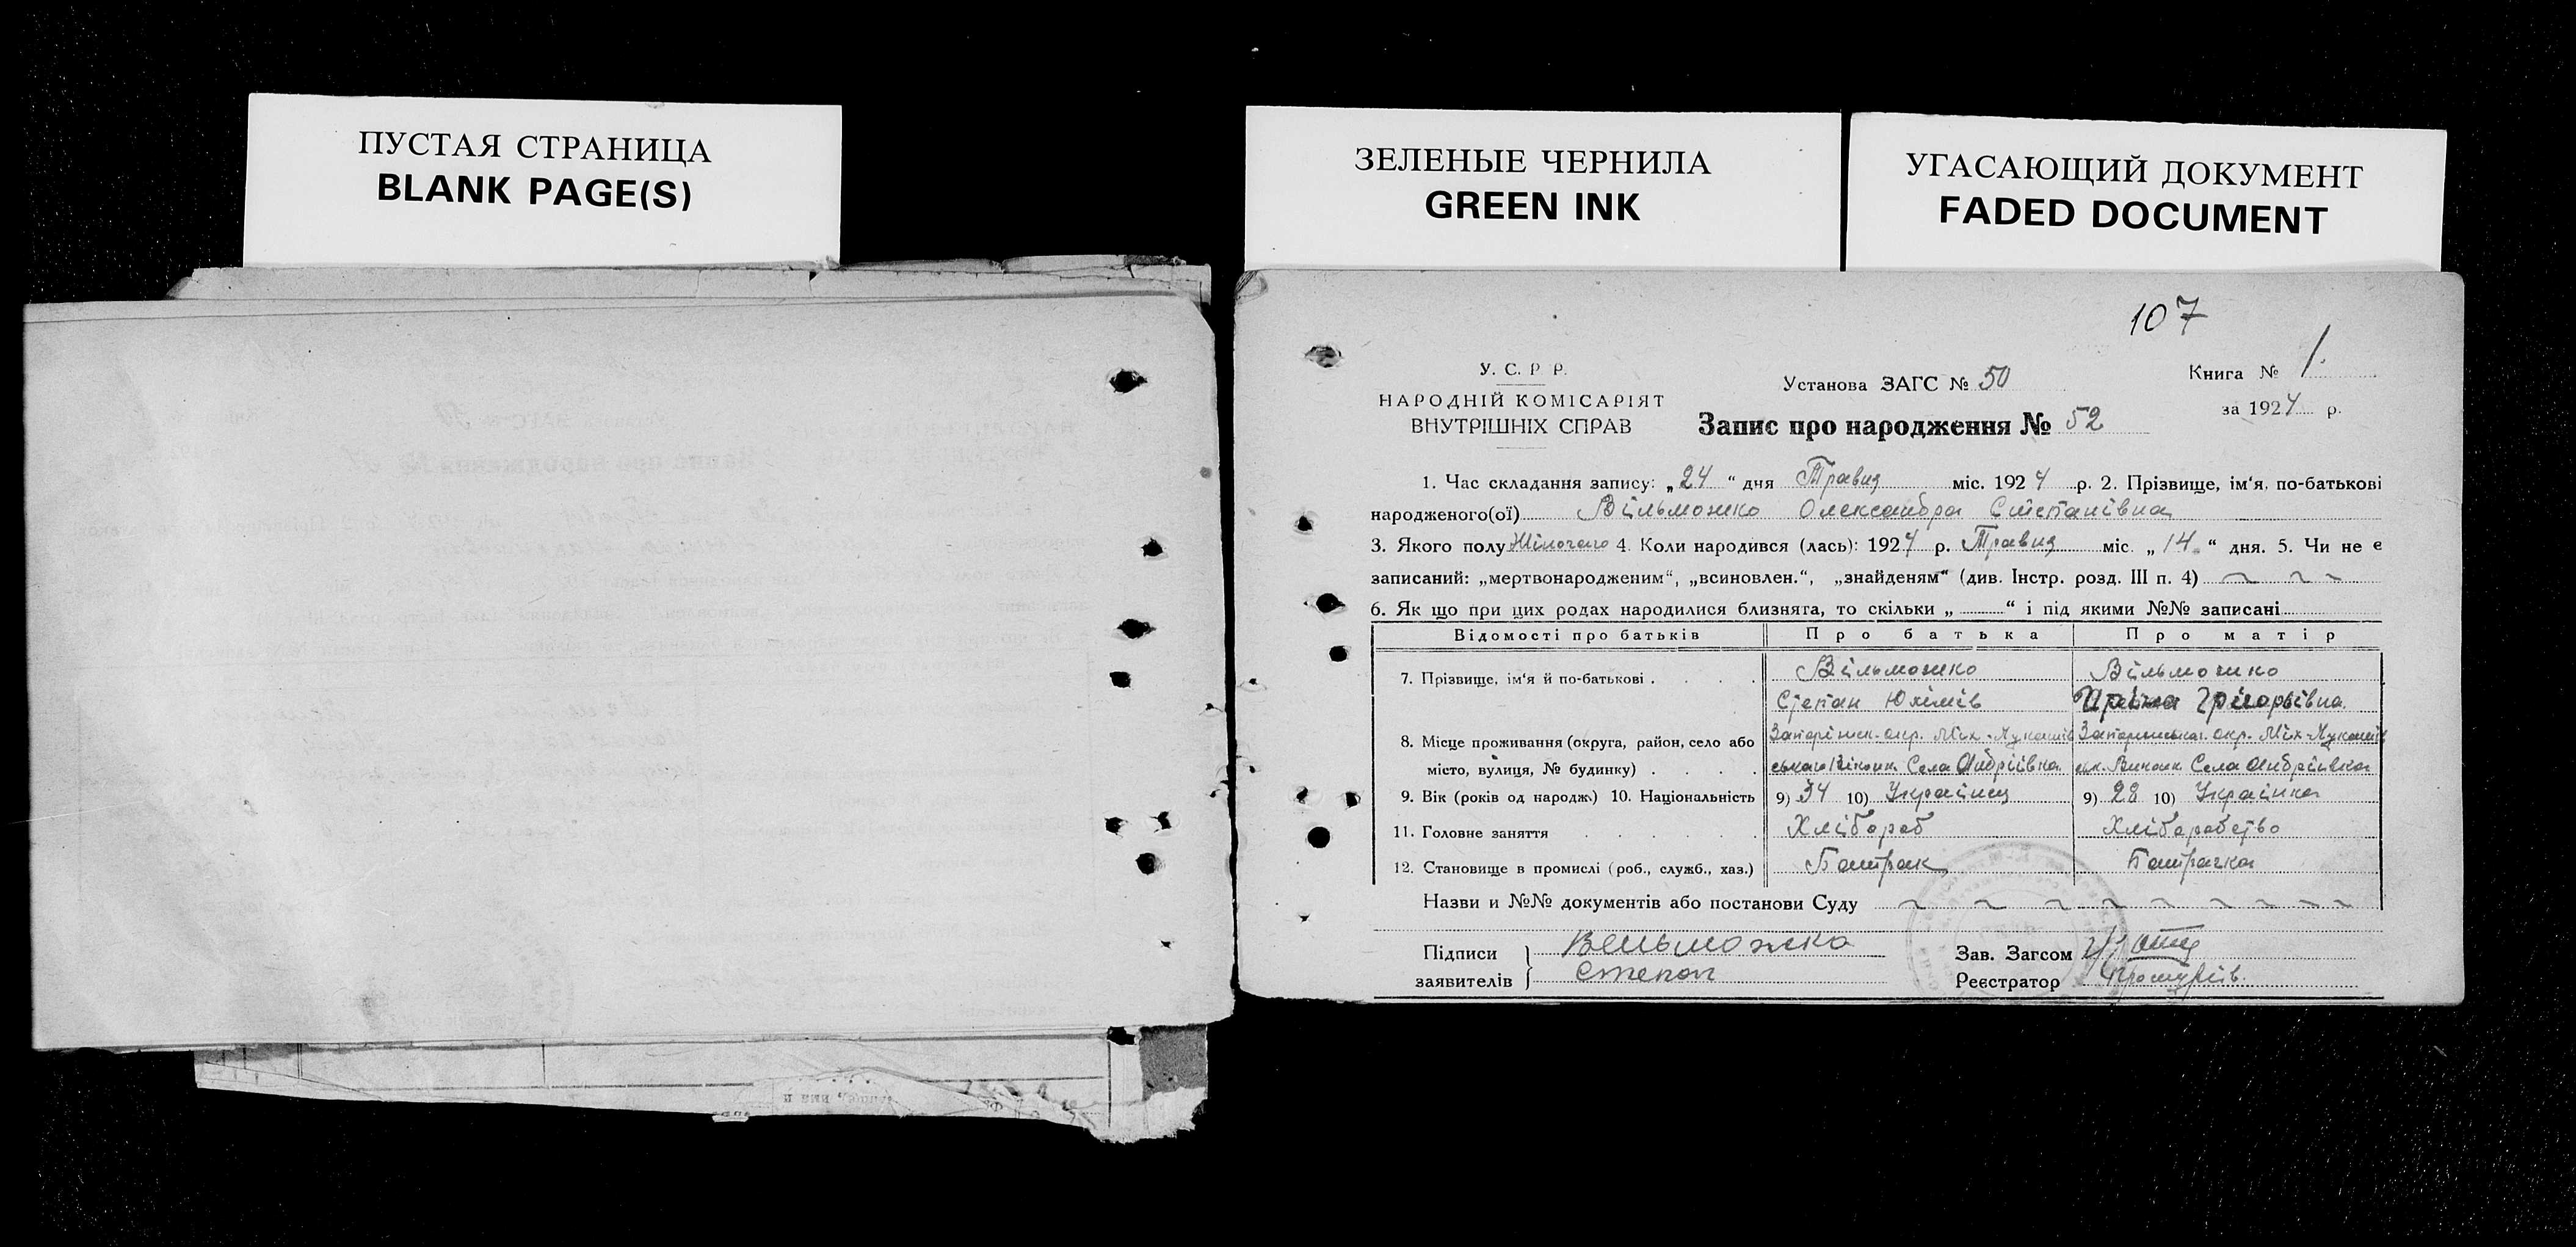 ПУСТАЯ СТРАНИЦА
BLANK PAGE(S)
ЗЕЛЕНЫЕ ЧЕРНИЛА
GREEN INK
УГАСАЮЩИЙ ДОКУМЕНТ
FADED DOCUMENT
107
У. С. Р. Р.
НАРОДНІЙ КОМІСАРІЯТ
ВНУТРІШНІХ СПРАВ
Установа ЗАГС № 50
Книга № 1.
за 1924 р.
Запис про народження № 52
1. Час складання запису: „24“ дня Травня міс. 1924 р. 2. Прізвище, ім'я, по-батькові
народженого(ої) Вільможко Олександра Степанівна
3. Якого полу Жіночого 4. Коли народився (лась): 1924 р. Травня міс. „14“ дня. 5. Чи не є
записаний: „мертвонародженим“, „всиновлен.“, „знайденям“ (див. Інстр. розд. III п. 4)
6. Як що при цих родах народилися близнята, то скільки „ “ і під якими №№ записані
Відомості про батьків Про батька Про матір
7. Прізвище, ім'я й по-батькові . . . . Вільможко Вільможко
Степан Юхімів Григорівна
8. Місце проживання (округа, район, село або місто, вулиця, № будинку) . . . .
Запоріжск. окр. Міх-Лукашів
Села Андріївка
окр. Міх-Лукашів
Села Андріївка
9. Вік (років од народж.) 10. Національність 9) 34 10) Українец 9) 28 10) Українка
11. Головне заняття . . . . . . Хлібороб Хліборобство
12. Становище в промислі (роб., служб., хаз.) Батрак Батрачка
Назви и №№ документів або постанови Суду
Підписи заявителів
Вельможко
Степан
Зав. Загсом
Реєстратор